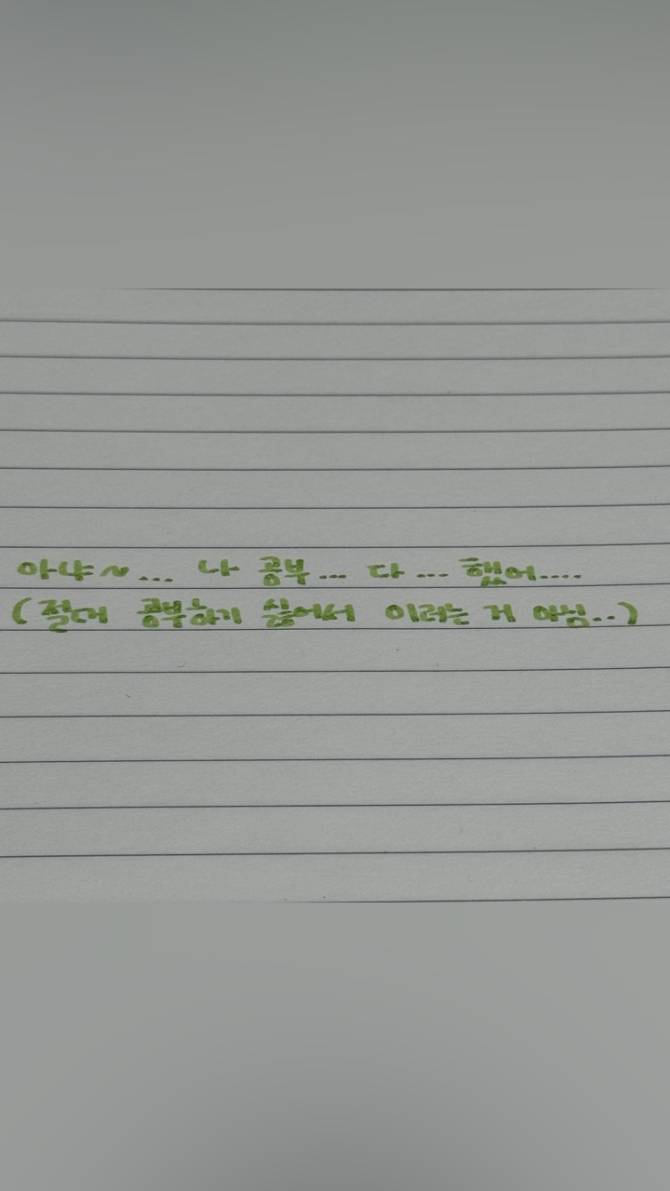 아냐~... 나 공부... 다... 했어....
(절대 공부하기 싫어서 이러는 거 아님..)